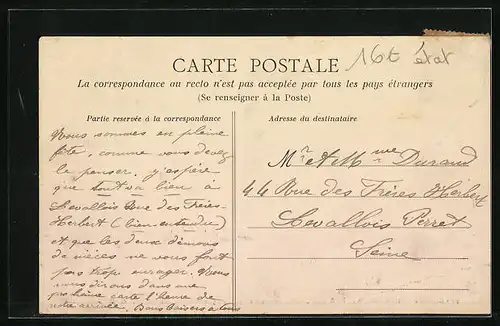 16t état
CARTE POSTALE
La correspondance au recto n'est pas acceptée par tous les pays étrangers
(Se renseigner à la Poste)
Partie reservée à la correspondance
Nous sommes en pleine
fête, comme vous devez
le penser. J'espère
que tout va bien à
Levallois Rue des Frères-
Herbert (bien entendu)
et que les deux démons
de nièces ne vous font
pas trop enrager. Nous
vous dirons dans une
prochaine carte l'heure de
notre arrivée. Bons baisers à tous
Adresse du destinataire
Mr et Mme Durand
44 Rue des Frères Herbert
Levallois Perret
Seine